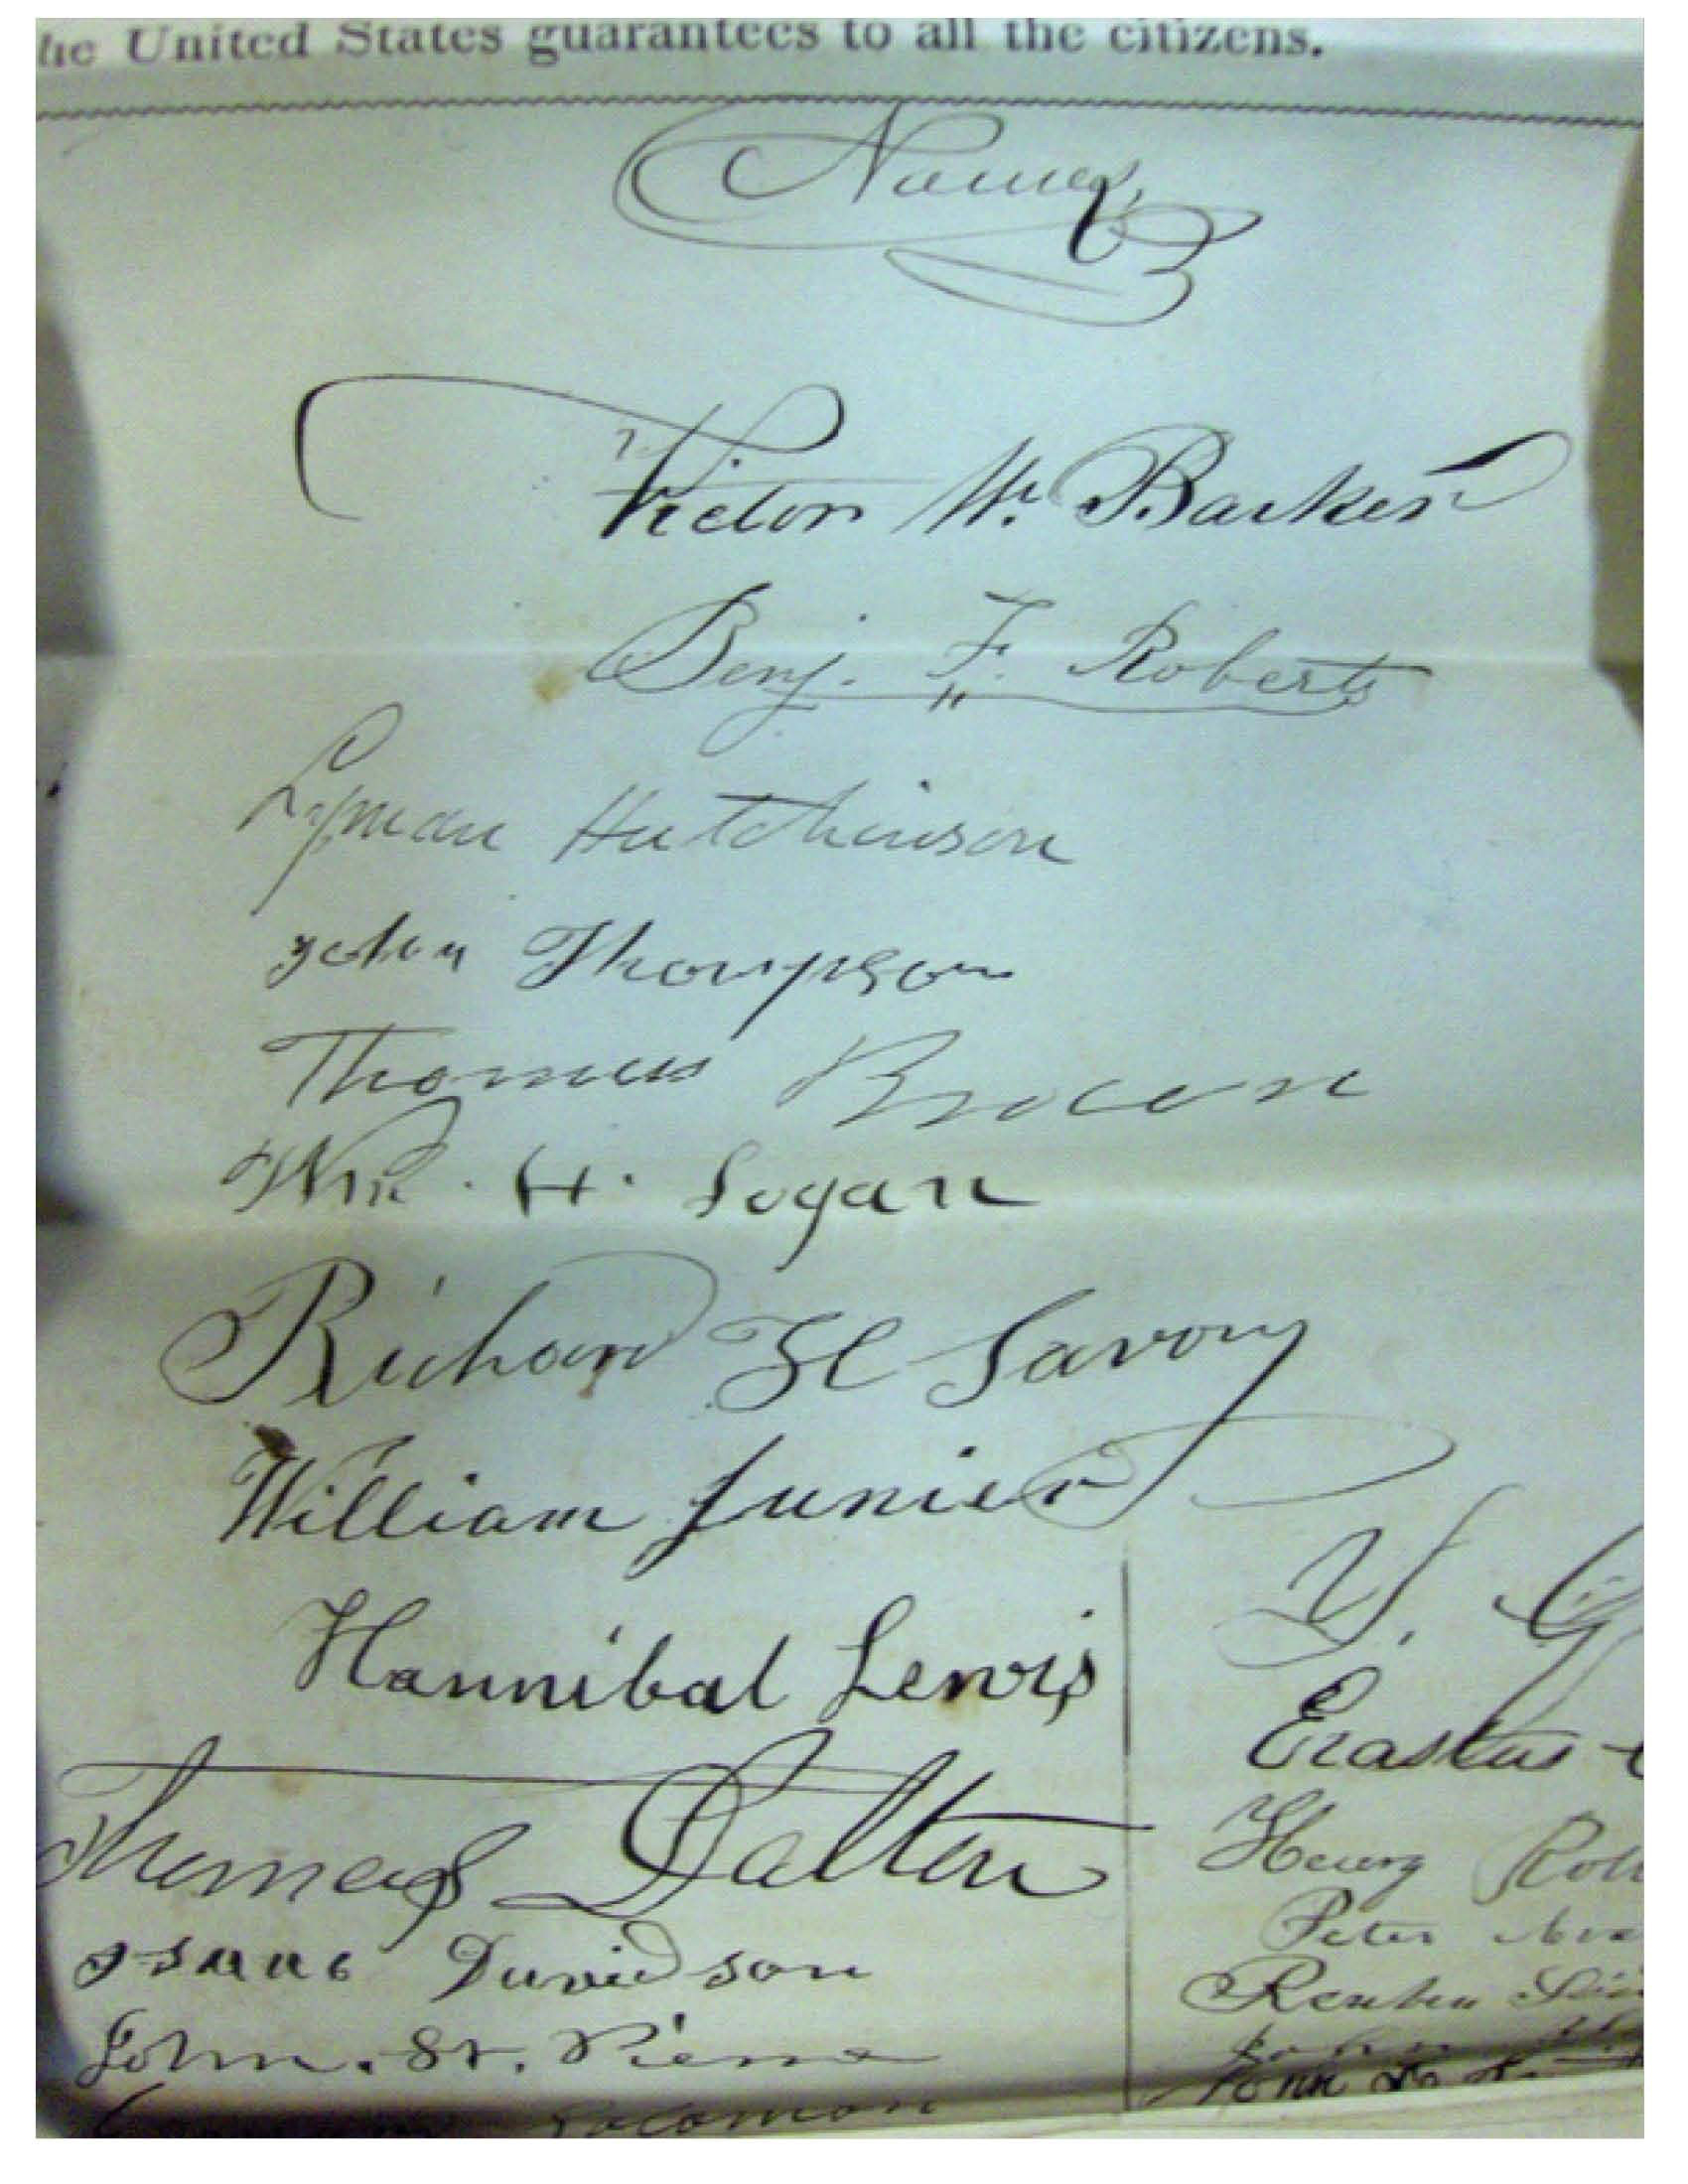 he United States guarantees to all the citizens.
Names
Victor W. Barker
Benj. F. Roberts
Lyman Hutchinson
John Thompson
Thomas Brown
Wm. H. Logan
Richard H Savory
William Junier
Hannibal Lewis
Thomas Dalton
Isaac Davidson
John. St. Pierre
Solomon
Y. G
Erastus
Henry
Peter
Reuben
John
John